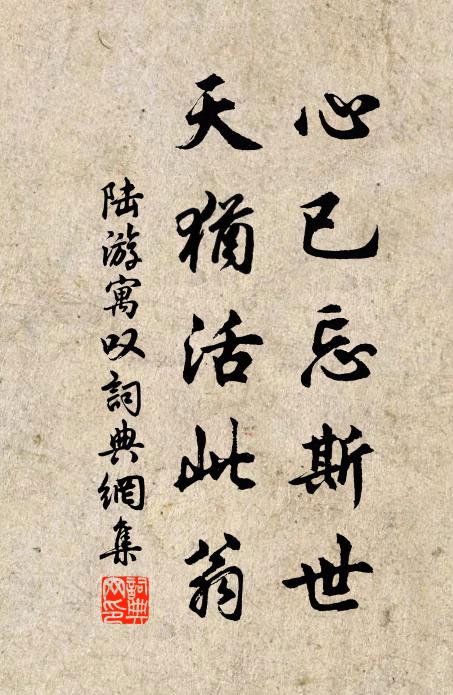 心已忘斯世
天猶活此翁
陆游寓叹詞典網集
詞典
网印